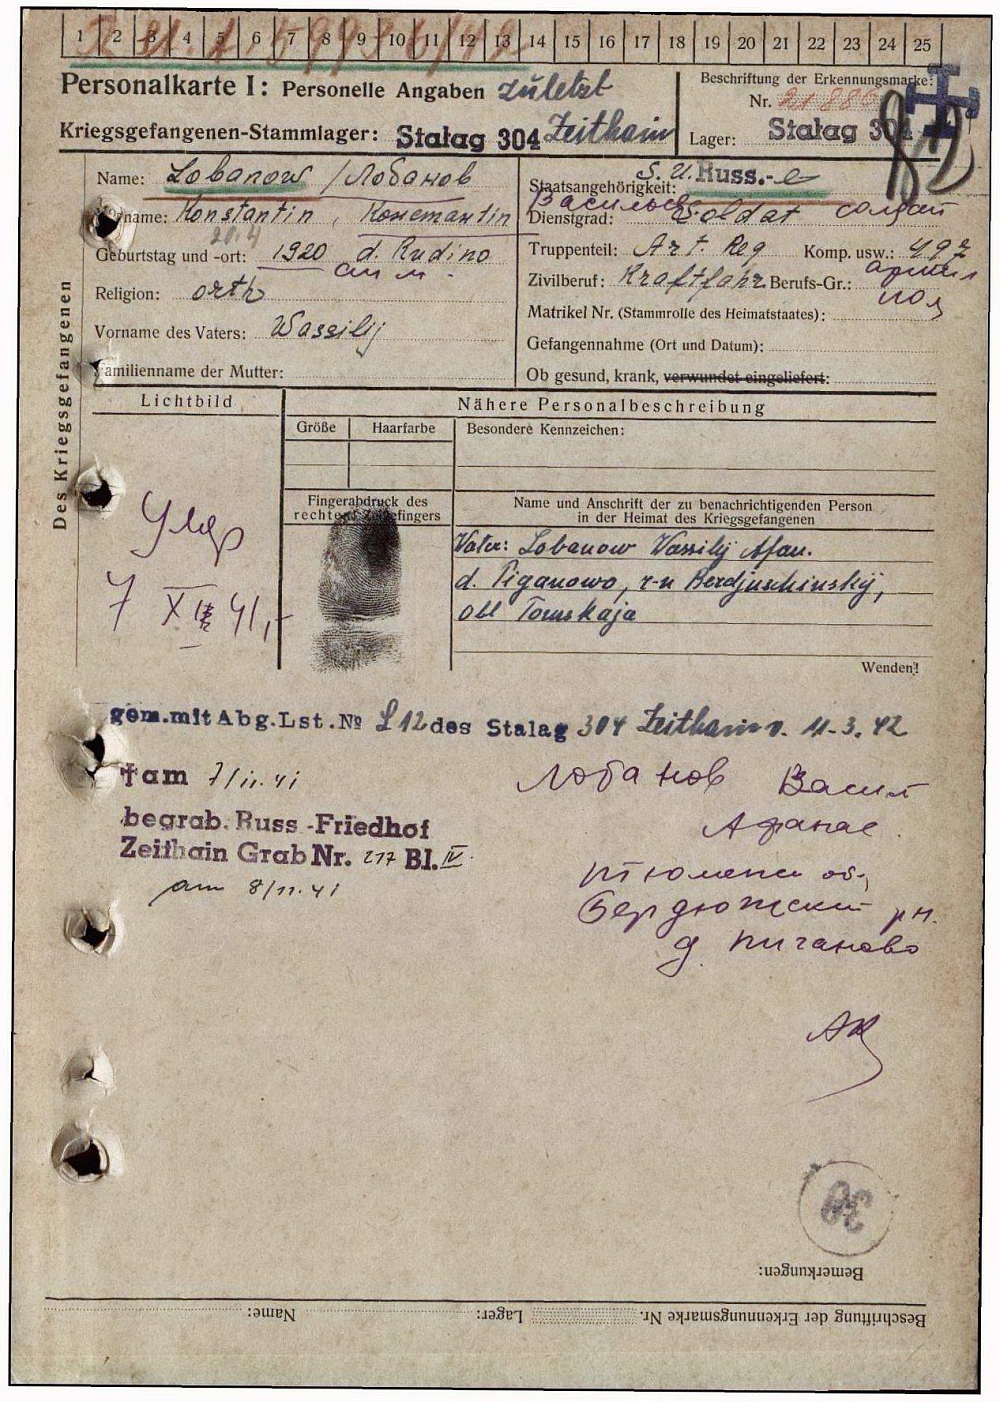 1 2 3 4 5 6 7 8 9 10 11 12 13 14 15 16 17 18 19 20 21 22 23 24 25
Personalkarte I: Personelle Angaben zuletzt
Beschriftung der Erkennungsmarke:
Nr. 21886
Kriegsgefangenen-Stammlager: Stalag 304 Zeithain
Lager: Stalag 304
Des Kriegsgefangenen
Name: Lobanow / Лобанов
Staatsangehörigkeit: S.U. Russ.
Vorname: Konstantin,
Dienstgrad: Soldat солдат
Geburtstag und -ort: 20.4 1920 d. Rudino
Truppenteil: Art. Reg Komp. usw.: 497
Religion: orth
Zivilberuf: Kraftfahr. Berufs-Gr.:
Vorname des Vaters: Wassilij
Matrikel Nr. (Stammrolle des Heimatstaates):
Gefangennahme (Ort und Datum):
Familienname der Mutter:
Ob gesund, krank, verwundet eingeliefert:
Lichtbild
Nähere Personalbeschreibung
Größe Haarfarbe Besondere Kennzeichen:
Fingerabdruck des rechten Zeigefingers
Name und Anschrift der zu benachrichtigenden Person
in der Heimat des Kriegsgefangenen
Vater: Lobanow Wassilij Afan.
d. Piganowo, r-n Berdjuschinskij,
obl Tomskaja
Умер
7 XI 41
Wenden!
gem. mit Abg. Lst. № L12 des Stalag 304 Zeithain v. 11.3.42
† am 7/11.41
begrab. Russ-Friedhof
Zeithain Grab Nr. 217 Bl. IV.
am 8/11.41
Лобанов Васил
Афанас.
Тюмени об,
Бердюжский рн.
д. Пиганово
Bemerkungen:
Beschriftung der Erkennungsmarke Nr. Lager: Name: